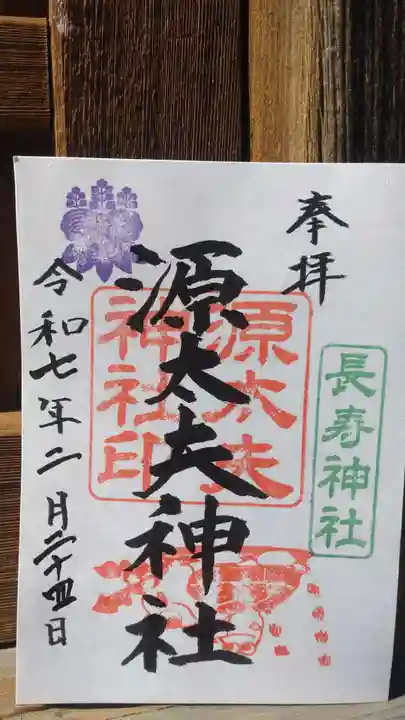 奉拝
長寿神社
源太夫神社
源太夫
神社印
令和七年二月二十四日